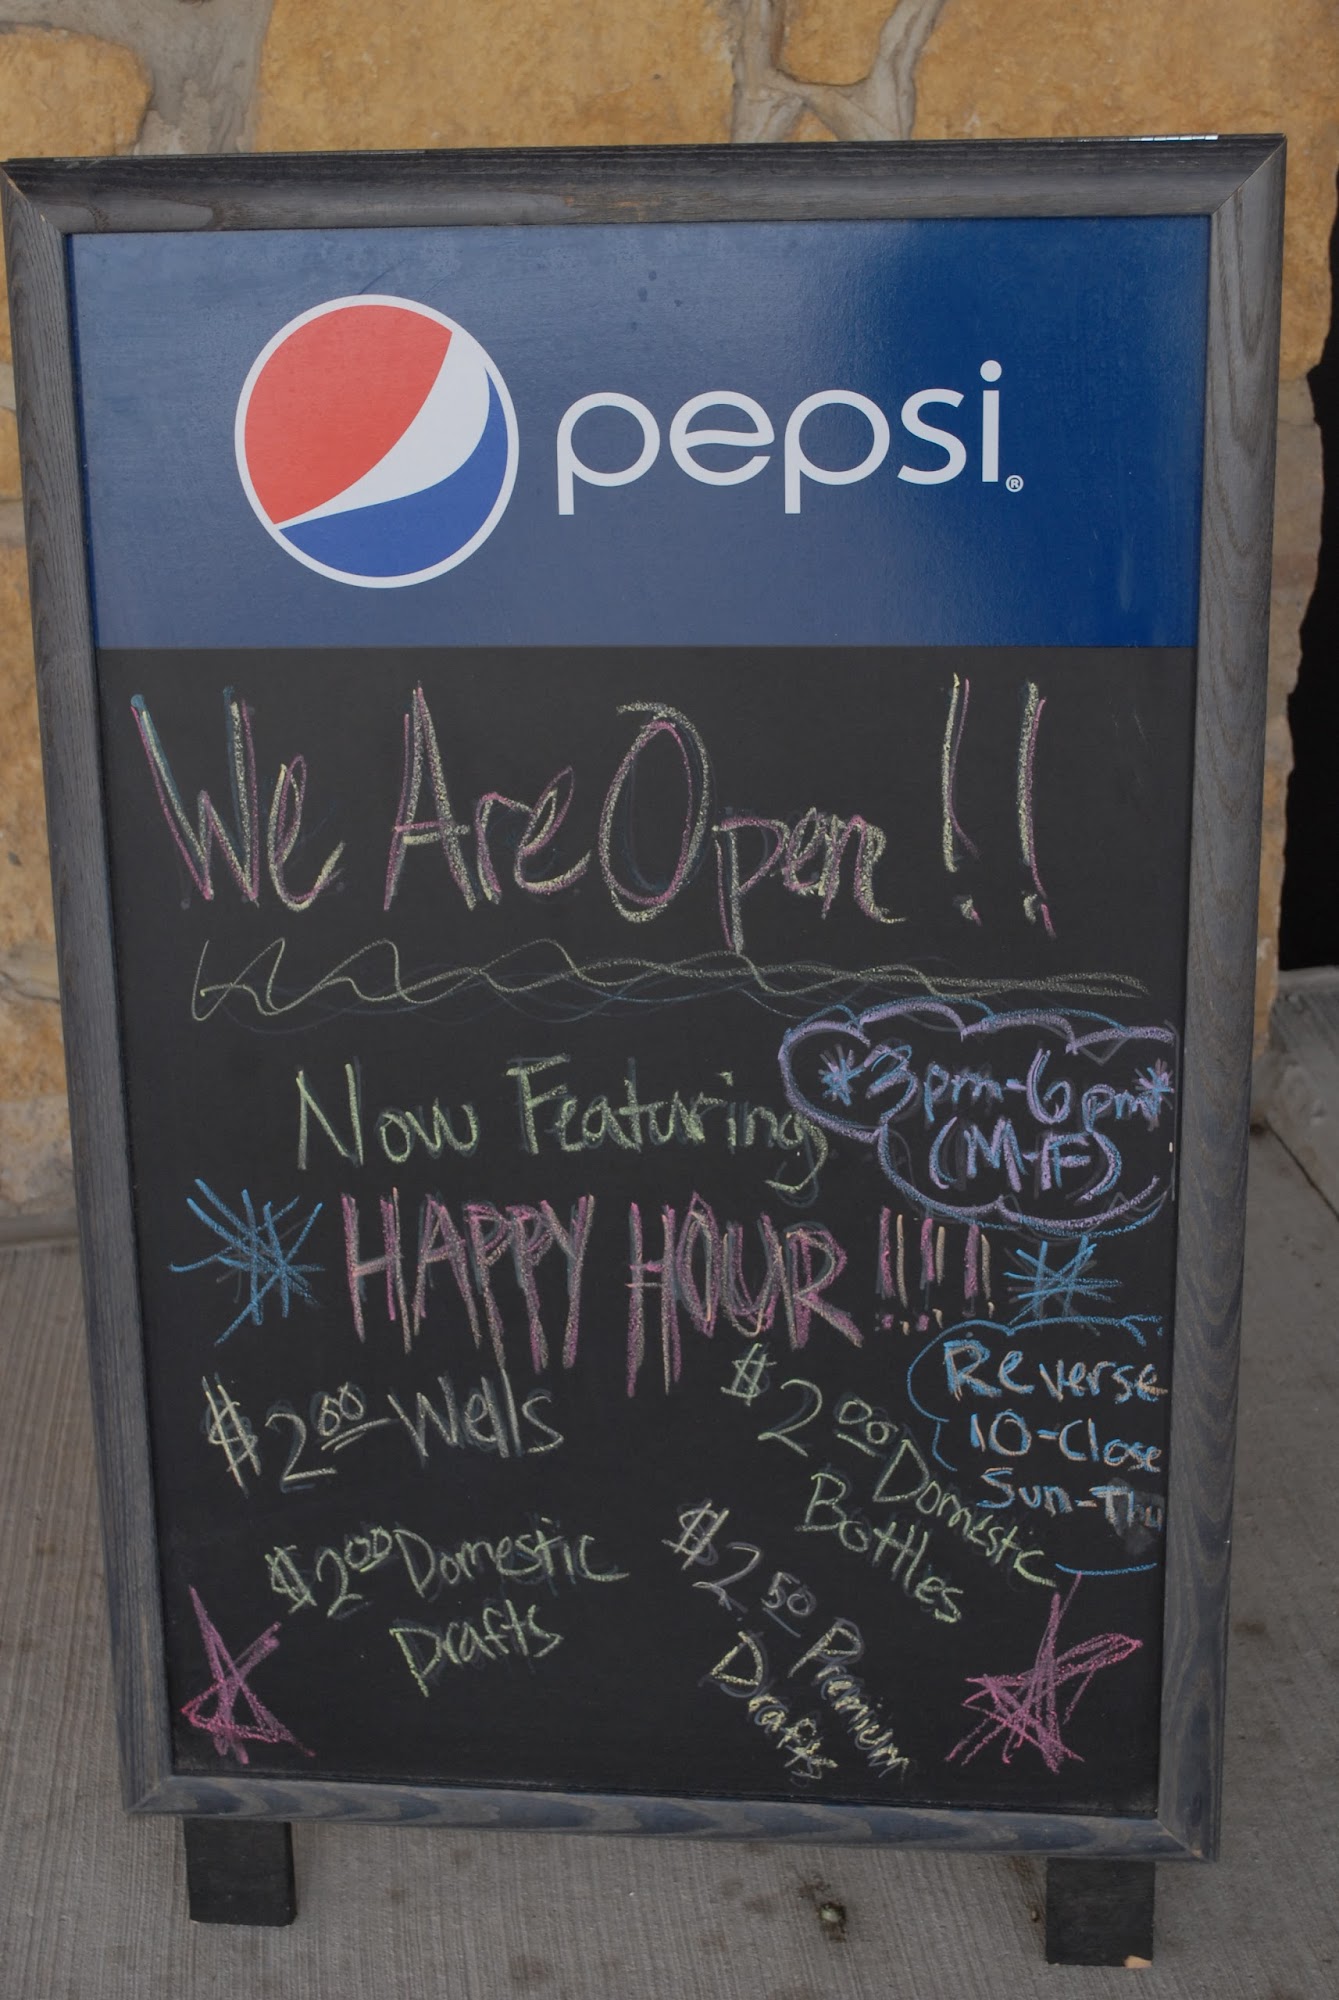 pepsi®
We Are Open!!
Now Featuring
*3pm-6pm*
(M-F)
HAPPY HOUR!!!!
Reverse
10-Close
Sun-Thu
$2.00 Wells
$2.00 Domestic
Bottles
$2.00 Domestic
Drafts
$2.50 Premium
Drafts